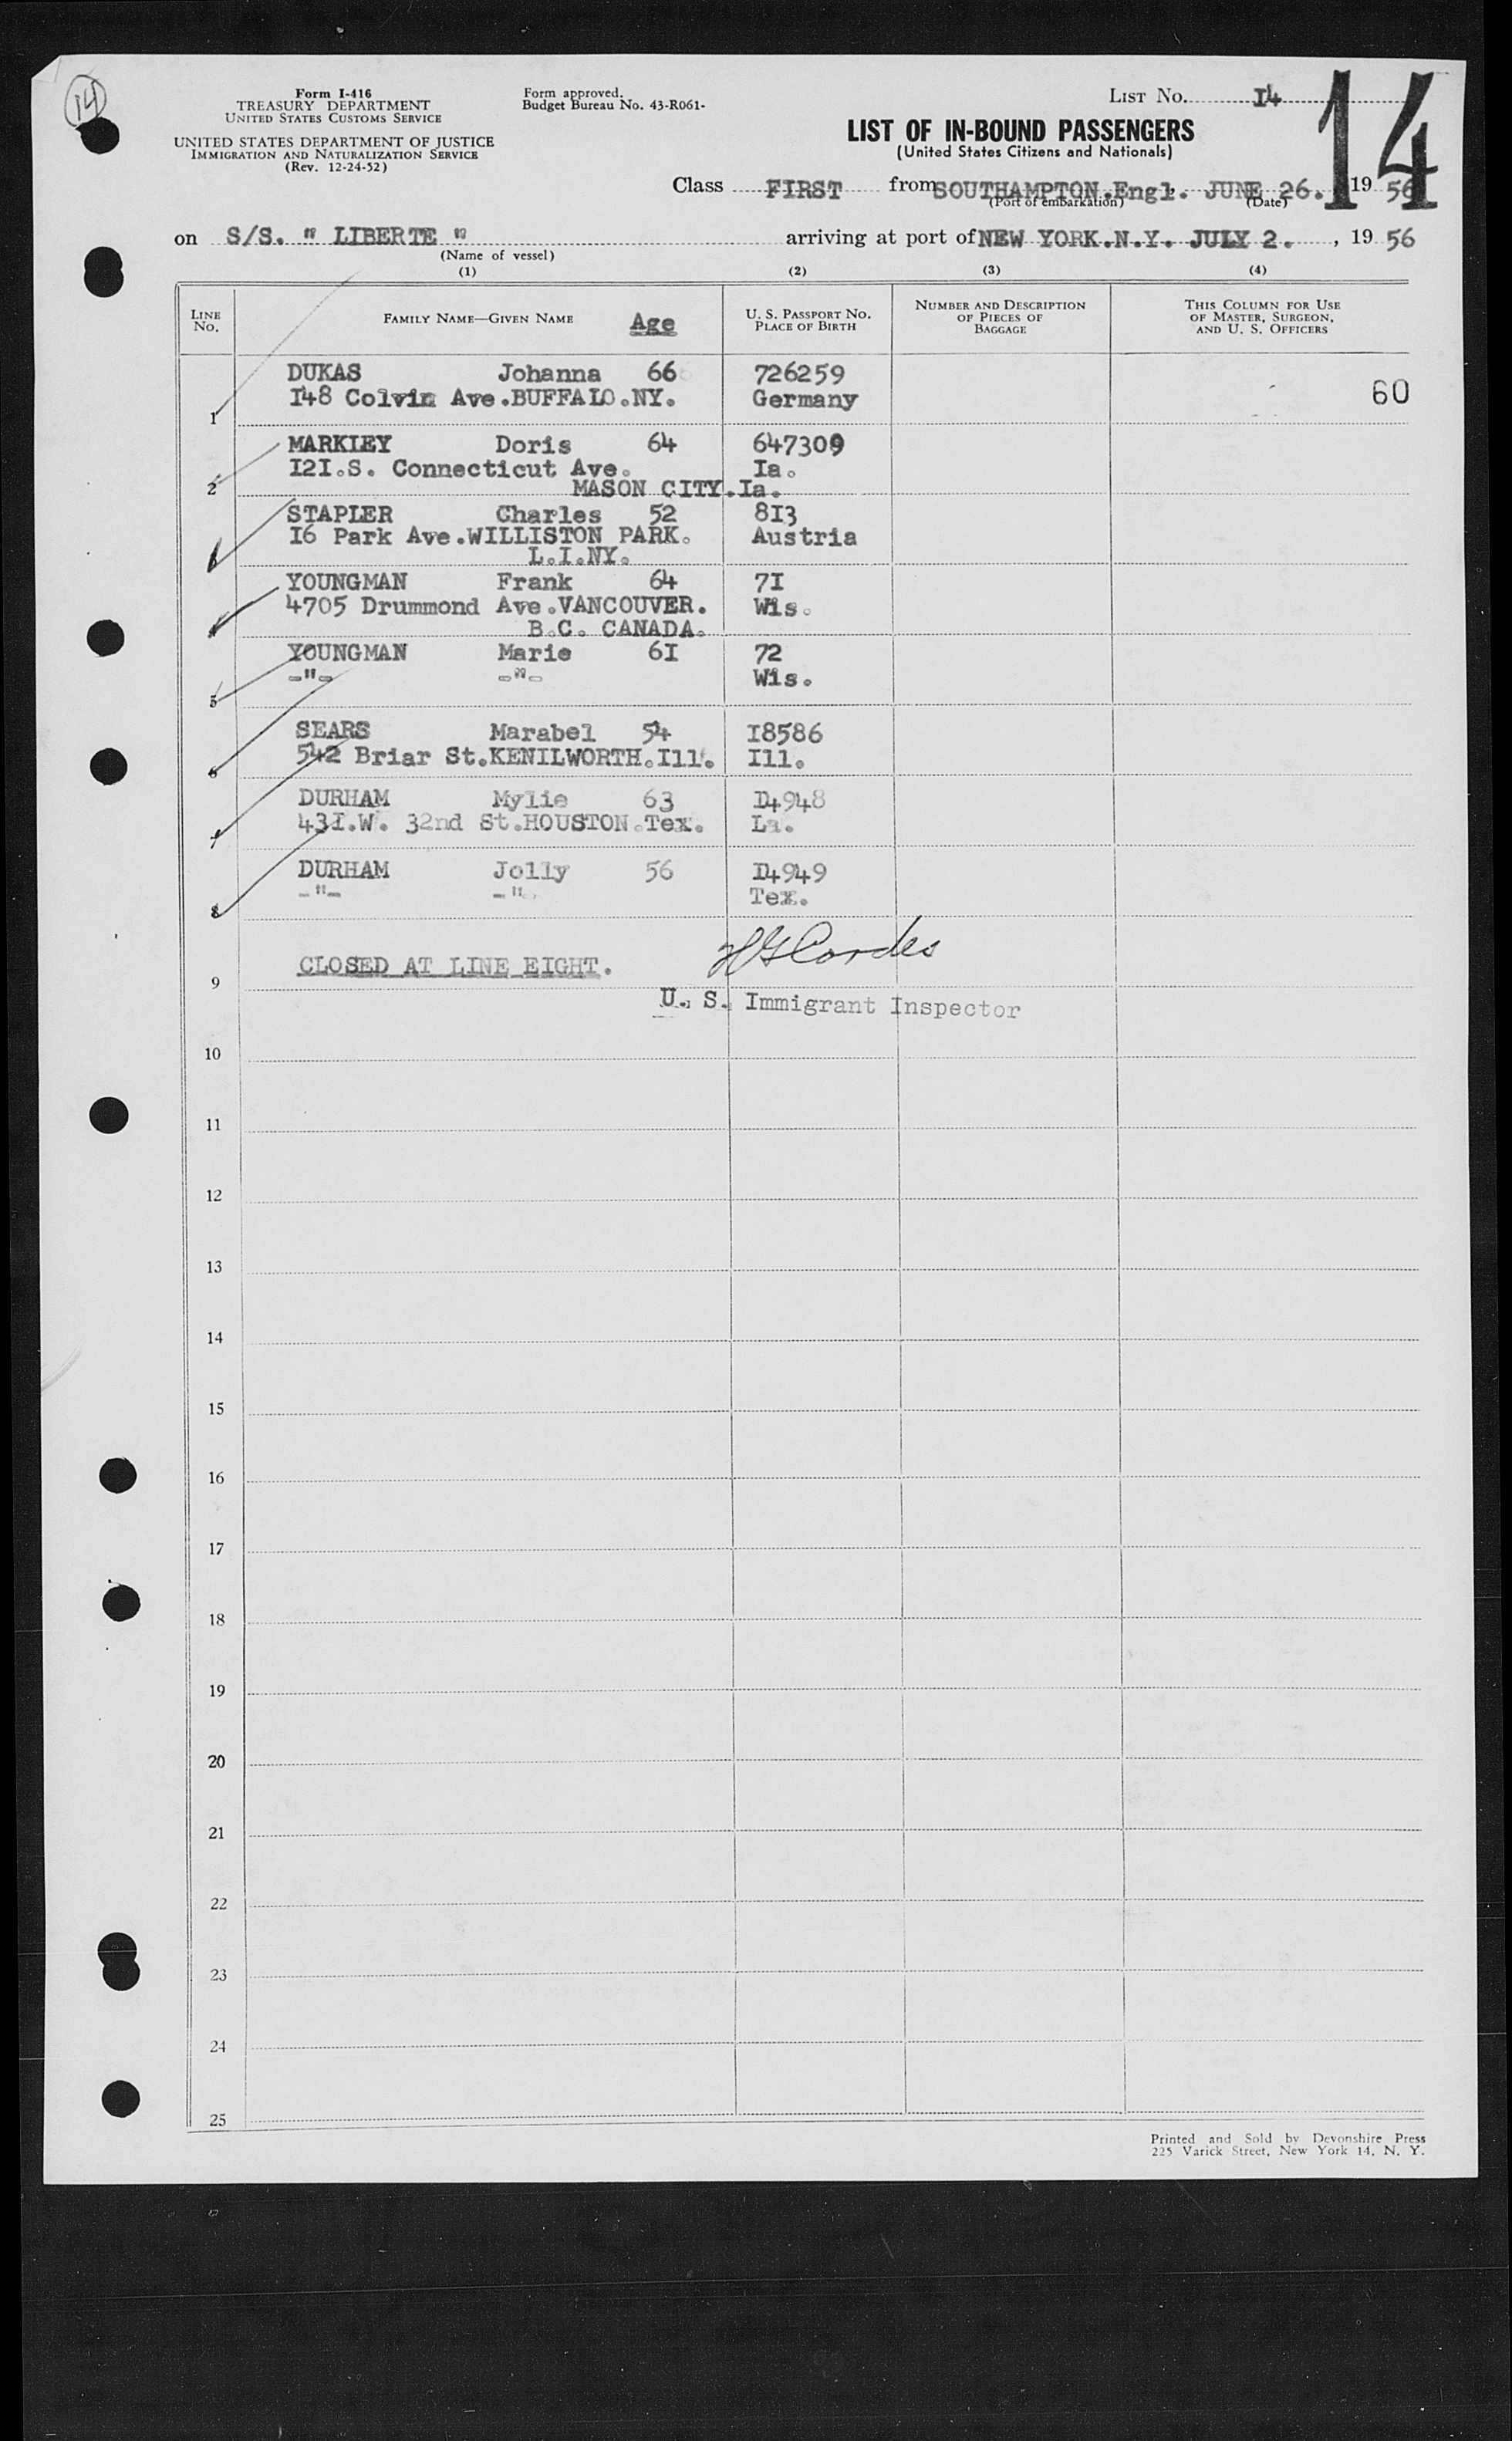 14
Form I-416
TREASURY DEPARTMENT
UNITED STATES CUSTOMS SERVICE
UNITED STATES DEPARTMENT OF JUSTICE
IMMIGRATION AND NATURALIZATION SERVICE
(Rev. 12-24-52)
Form approved.
Budget Bureau No. 43-R061-
LIST No. I4
14
LIST OF IN-BOUND PASSENGERS
(United States Citizens and Nationals)
Class FIRST from SOUTHAMPTON.Engl. JUNE 26. 19 56
(Port of embarkation) (Date)
on S/S. " LIBERTE " arriving at port of NEW YORK.N.Y. JULY 2. , 19 56
(Name of vessel)
(1) (2) (3) (4)
LINE No. FAMILY NAME—GIVEN NAME Age U. S. PASSPORT NO. PLACE OF BIRTH NUMBER AND DESCRIPTION OF PIECES OF BAGGAGE THIS COLUMN FOR USE OF MASTER, SURGEON, AND U. S. OFFICERS
DUKAS Johanna 66 726259
1 I48 Colvin Ave.BUFFALO.NY. Germany 60
MARKLEY Doris 64 647309
I2I.S. Connecticut Ave. Ia.
2 MASON CITY.Ia.
STAPLER Charles 52 8I3
I6 Park Ave.WILLISTON PARK. Austria
3 L.I.NY.
YOUNGMAN Frank 64 7I
4705 Drummond Ave.VANCOUVER. Wis.
4 B.C. CANADA.
YOUNGMAN Marie 6I 72
-"- -"- Wis.
5
SEARS Marabel 54 I8586
6 542 Briar St.KENILWORTH.Ill. Ill.
DURHAM Mylie 63 D4948
7 43I.W. 32nd St.HOUSTON.Tex. La.
DURHAM Jolly 56 D4949
8 -"- -"- Tex.
9 CLOSED AT LINE EIGHT. HG Cordes
U. S. Immigrant Inspector
10
11
12
13
14
15
16
17
18
19
20
21
22
23
24
25
Printed and Sold by Devonshire Press
225 Varick Street, New York 14, N. Y.